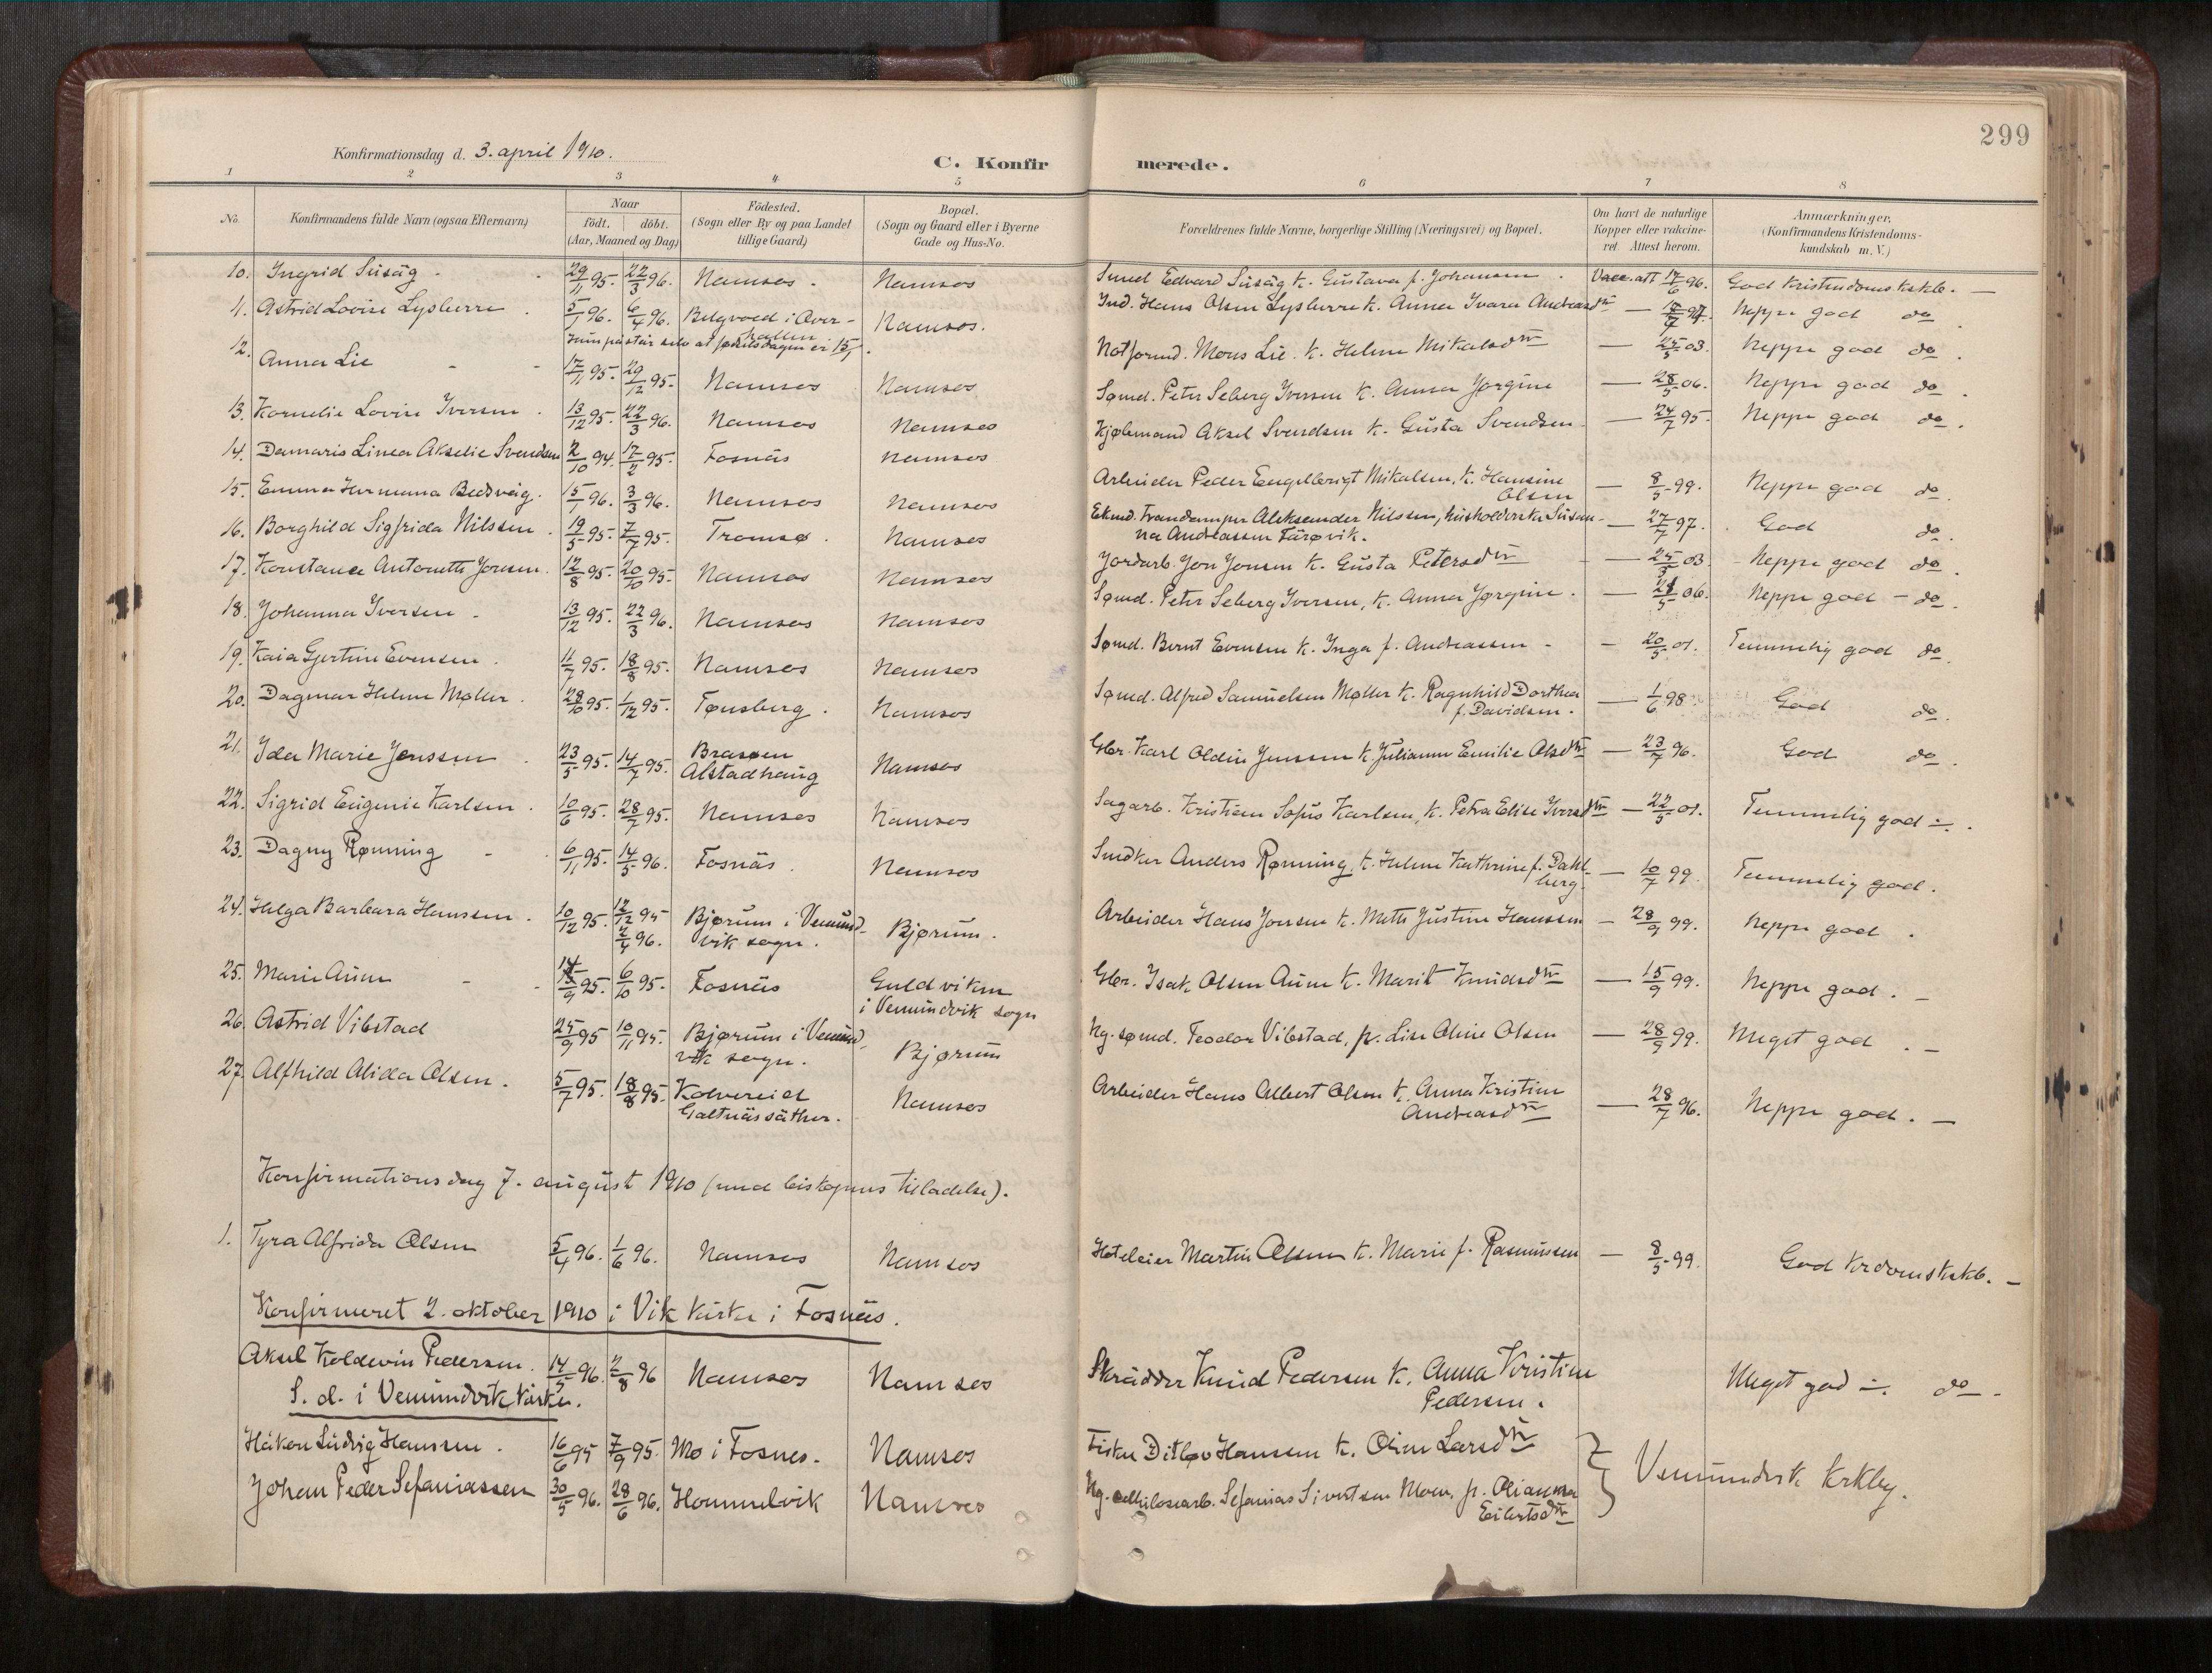 299
Konfirmationsdag d. 3. april 1910.
C. Konfirmerede.
1 2 3 4 5 6 7 8
No. Konfirmandens fulde Navn (ogsaa Efternavn) Naar födt. döbt. (Aar, Maaned og Dag) Födested. (Sogn eller By og paa Landet tillige Gaard) Bopæl. (Sogn og Gaard eller i Byerne Gade og Hus-No. Forældrenes fulde Navne, borgerlige Stilling (Næringsvei) og Bopæl. Om havt de naturlige Kopper eller vakcineret Attest herom. Anmærkninger. (Konfirmandens Kristendomskundskab m. V.)
10. Ingrid Süsäg 29/11 95. 22/3 96. Namsos. Namsos Smed Edvard Süsäg k. Gustava f. Johansen. Vacc. att 17/6 96. God Kristendomskskb. —
11. Astrid Lovise Lysberre 5/1 96. 6/4 96. i Overhallen Namsos. Ind. Hans Olsen Lysberre k. Anna Ivara Andreasdtr — 97. Neppe god do.
selv at fødselsdagen er 15/1.
12. Anna Lie 17/11 95. 29/12 95. Namsos Namsos Notformd. Mons Lie. k. Helene Mikalsdtr — 25/5 03. Neppe god do.
13. Kornelie Lovise Iversen 13/12 95. 22/3 96. Namsos Namsos Sømd. Peter Seberg Iversen k. Anna Jørgine — 28/5 06. Neppe god do.
14. Damaris Linea Akselie Svendsen 2/10 94. 17/2 95. Fosnäs Namsos Kjølemand Aksel Svendsen k. Gusta Svendsen — 24/7 95. Neppe god do.
15. Emma Hermana Bedsvåg. 15/1 96. 3/3 96. Namsos Namsos Arbeider Peder Engelbrigt Mikalsen, k. Hansine Olsen — 8/5 99. Neppe god do.
16. Borghild Sigfrida Nilssen 19/5 95. 7/7 95. Tromsø. Namsos Ekmd. Trandamper Aleksander Nilssen, husholderske Susanna Andreassen Färøvik. — 27/7 97. God do.
17. Konstance Antonette Jonsen. 12/8 95. 20/10 95. Namsos Namsos Jordarb. Jon Jonsen k. Gusta Petersdtr — 25/5 03. Neppe god do.
18. Johanna Iversen 13/12 95. 22/3 96. Namsos Namsos Sømd. Peter Seberg Iversen, k. Anna Jørgine. — 28/5 06. Neppe god — do.
19. Kaia Gjertine Evensen 11/7 95. 18/8 95. Namsos Namsos Sømd. Bernt Evensen k. Inga f. Andreassen — 20/5 01. Temmelig god do.
20. Dagmar Helene Møller. 28/10 95. 1/12 95. Tønsberg. Namsos Sømd. Alfred Samuelsen Møller k. Ragnhild Dorthea f. Davidsen. — 1/6 98. God do.
21. Ida Marie Jenssen 23/5 95. 14/7 95. Brasøen Alstadhaug Namsos Gbr. Karl Oldin Jenssen k. Julianne Emilie Olsdtr — 23/7 96. God do.
22. Sigrid Eugenie Karlsen. 10/6 95. 28/7 95. Namsos Namsos Sagarb. Kristian Sofus Karlsen, k. Petra Elise Iversdtr — 22/5 01. Temmelig god.
23. Dagny Rønning 6/11 95. 14/5 96. Fosnäs. Namsos Snedker Anders Rønning, k. Helene Kathrine f. Dahlberg. — 10/7 99. Temmelig god.
24. Helga Barbara Hanssen. 10/12 95. 12/12 95 2/4 96. Bjørum i Vemundvik sogn. Bjørum. Arbeider Hans Jonsen k. Mette Justine Hanssen — 28/9 99. Neppe god.
25. Marie Aune 14/9 95. 6/10 95. Fosnäs Guldviken i Vemundvik sogn Gbr. Isak Olsen Aune k. Marit Knudsdtr — 15/9 99. Neppe god. —
26. Astrid Vibstad 25/9 95 10/11 95. Bjørum i Vemundvik sogn. Bjørum Ug. sømd. Teodor Vibstad, p. Lise Oline Olsen — 28/9 99. Meget god. —
27. Alfhild Alida Olsen. 5/7 95. 18/8 95. Kolvereid Galtnässäther. Namsos Arbeider Hans Albert Olsen k. Anna Kristine Andreasdtr — 28/7 96. Neppe god. —
Konfirmationsdag 7. august 1910 (med biskopens tilladelse).
1. Tyra Alfrida Olsen 5/4 96. 1/6 96. Namsos Namsos Hoteleier Martin Olsen k. Marie f. Rasmussen — 8/5 99. God krdomskskb. —
Konfirmeret 2. oktober 1910 i Vik kirke i Fosnäs.
Aksel Koldevin Pedersen. 14/5 96. 2/8 96 Namsos Namsos Skrädder Knud Pedersen k. Anna Kristine Pedersen. Meget god do.
S. d. i Vemundvik kirke.
Håkon Ludvig Hanssen. 16/6 95 7/9 95. Mo i Fosnes. Namsos Fisker Ditløv Hanssen k. Oline Larsdtr
Johan Peder Sefaniassen 30/5 96. 28/6 96. Hommelvik Namsos Ug. cellulosearb. Sefanias Sivertsen Moen, p. Olianna Eilertsdtr
Vemundvik krkbg.